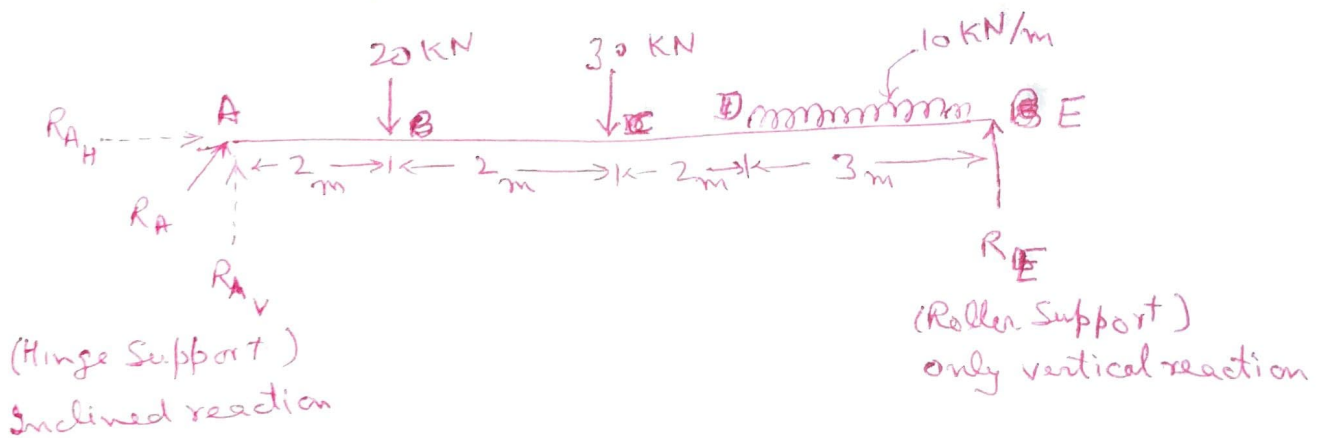 20 KN
30 KN
10 KN/m
A
B
C
D
E
R_AH
2 m
2 m
2 m
3 m
R_A
R_AV
R_E
(Hinge Support)
Inclined reaction
(Roller Support)
only vertical reaction